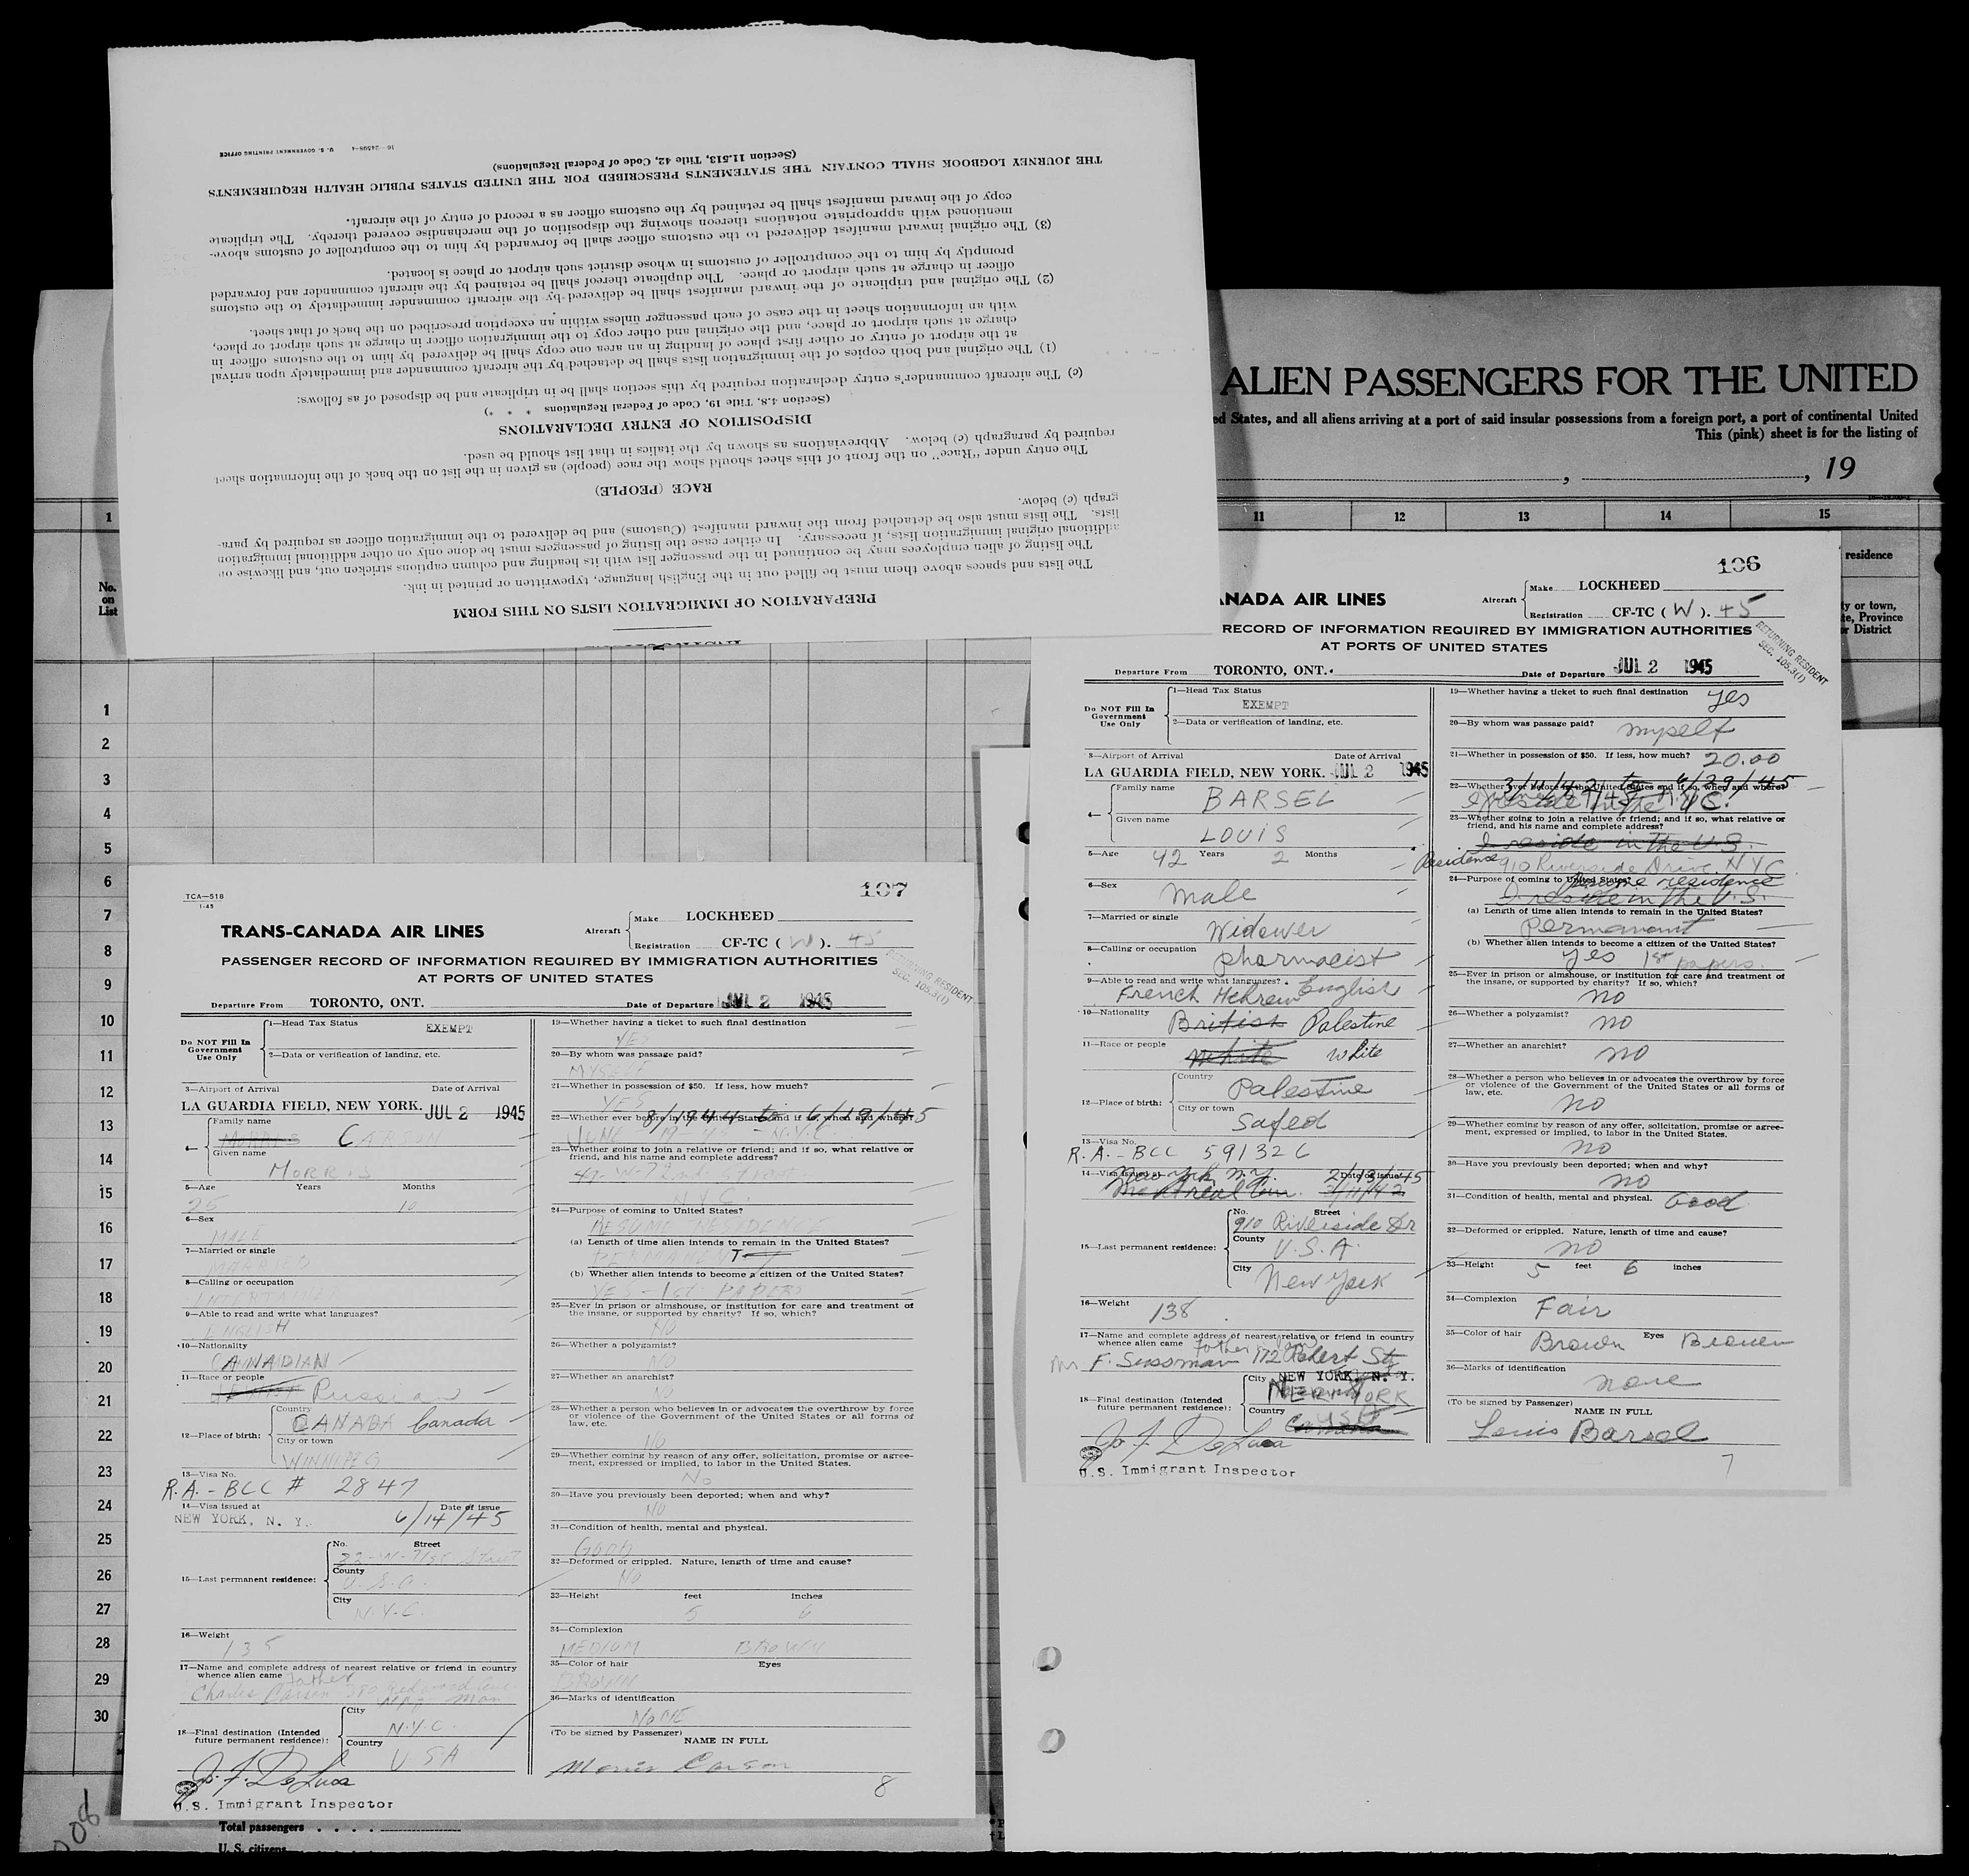 PREPARATION OF IMMIGRATION LISTS ON THIS FORM
The lists and spaces above them must be filled out in the English language, typewritten or printed in ink.
The listing of alien employees may be continued in the passenger list with its heading and column captions stricken out, and likewise on
additional original immigration lists, if necessary. In either case the listing of passengers must be done only on other additional immigration
lists. The lists must also be detached from the inward manifest (Customs) and be delivered to the immigration officer as required by para-
graph (c) below.
RACE (PEOPLE)
The entry under "Race" on the front of this sheet should show the race (people) as given in the list on the back of the information sheet
required by paragraph (c) below. Abbreviations as shown by the italics in that list should be used.
DISPOSITION OF ENTRY DECLARATIONS
(Section 4.8, Title 19, Code of Federal Regulations * * *)
(c) The aircraft commander's entry declaration required by this section shall be in triplicate and be disposed of as follows:
(1) The original and both copies of the immigration lists shall be detached by the aircraft commander and immediately upon arrival
at the airport of entry or other first place of landing in an area one copy shall be delivered by him to the customs officer in
charge at such airport or place, and the original and other copy to the immigration officer in charge at such airport or place,
with an information sheet in the case of each passenger unless within an exception prescribed on the back of that sheet.
(2) The original and triplicate of the inward manifest shall be delivered by the aircraft commander immediately to the customs
officer in charge at such airport or place. The duplicate thereof shall be retained by the aircraft commander and forwarded
promptly by him to the comptroller of customs in whose district such airport or place is located.
(3) The original inward manifest delivered to the customs officer shall be forwarded by him to the comptroller of customs above-
mentioned with appropriate notations thereon showing the disposition of the merchandise covered thereby. The triplicate
copy of the inward manifest shall be retained by the customs officer as a record of entry of the aircraft.
THE JOURNEY LOGBOOK SHALL CONTAIN THE STATEMENTS PRESCRIBED FOR THE UNITED STATES PUBLIC HEALTH REQUIREMENTS
(Section 11.513, Title 42, Code of Federal Regulations)
16—24598-4 U. S. GOVERNMENT PRINTING OFFICE
ALIEN PASSENGERS FOR THE UNITED
ed States, and all aliens arriving at a port of said insular possessions from a foreign port, a port of continental United
This (pink) sheet is for the listing of
, , 19
1 11 12 13 14 15
No.
on
List
residence
ty or town,
te, Province
or District
1
2
3
4
5
6
7
8
9
10
11
12
13
14
15
16
17
18
19
20
21
22
23
24
25
26
27
28
29
30
Total passengers
U. S. citizens
008
106
NADA AIR LINES
Aircraft Make LOCKHEED
Registration CF-TC ( W ). 45
RECORD OF INFORMATION REQUIRED BY IMMIGRATION AUTHORITIES
AT PORTS OF UNITED STATES
RETURNING RESIDENT
SEC. 105.3(1)
Departure From TORONTO, ONT. Date of Departure JUL 2 1945
Do NOT Fill In
Government
Use Only
1—Head Tax Status
EXEMPT
2—Data or verification of landing, etc.
3—Airport of Arrival Date of Arrival
LA GUARDIA FIELD, NEW YORK. JUL 2 1945
4— Family name BARSEL
Given name LOUIS
5—Age 42 Years 2 Months
6—Sex male
7—Married or single Widower
8—Calling or occupation pharmacist
9—Able to read and write what languages?
French Hebrew English
10—Nationality British Palestine
11—Race or people White White
12—Place of birth: Country Palestine
City or town Safed
13—Visa No.
R.A. - BCC 591326
14—Visa issued at Date of issue
New York, N.Y. 2/13/45
Montreal 3/11/42
15—Last permanent residence: No. Street
910 Riverside Dr
County U.S.A.
City New York
16—Weight 138
17—Name and complete address of nearest relative or friend in country
whence alien came
F. Sussman 172 Robert St.
18—Final destination (Intended
future permanent residence):
City NEW YORK, N. Y.
NEW YORK
Country USA
Canada
Jo. F. DeLuca
U.S. Immigrant Inspector
19—Whether having a ticket to such final destination yes
20—By whom was passage paid? myself
21—Whether in possession of $50. If less, how much? 20.00
22—Whether ever before in the United States and if so, when and where?
3/11/42 to 6/29/45
23—Whether going to join a relative or friend; and if so, what relative or
friend, and his name and complete address?
I reside in the U.S.
Residence 910 Riverside Drive. NYC
24—Purpose of coming to United States? Resume residence
I reside in the U.S.
(a) Length of time alien intends to remain in the United States?
Permanant
(b) Whether alien intends to become a citizen of the United States?
yes 1st papers.
25—Ever in prison or almshouse, or institution for care and treatment of
the insane, or supported by charity? If so, which?
no
26—Whether a polygamist? no
27—Whether an anarchist? no
28—Whether a person who believes in or advocates the overthrow by force
or violence of the Government of the United States or all forms of
law, etc.
no
29—Whether coming by reason of any offer, solicitation, promise or agree-
ment, expressed or implied, to labor in the United States.
no
30—Have you previously been deported; when and why?
no
31—Condition of health, mental and physical. Good
32—Deformed or crippled. Nature, length of time and cause?
no
33—Height 5 feet 6 inches
34—Complexion Fair
35—Color of hair Brown Eyes Brown
36—Marks of identification
none
(To be signed by Passenger)
NAME IN FULL
Louis Barsel
7
TCA—518
1-45
107
TRANS-CANADA AIR LINES
Aircraft Make LOCKHEED
Registration CF-TC ( W ). 45
PASSENGER RECORD OF INFORMATION REQUIRED BY IMMIGRATION AUTHORITIES
AT PORTS OF UNITED STATES
RETURNING RESIDENT
SEC. 105.3(1)
Departure From TORONTO, ONT. Date of Departure JUL 2 1945
Do NOT Fill In
Government
Use Only
1—Head Tax Status EXEMPT
2—Data or verification of landing, etc.
3—Airport of Arrival Date of Arrival
LA GUARDIA FIELD, NEW YORK. JUL 2 1945
4— Family name MORRIS CARSON
Given name MORRIS
5—Age Years Months
25 10
6—Sex
MALE
7—Married or single
MARRIED
8—Calling or occupation
ENTERTAINER
9—Able to read and write what languages?
ENGLISH
10—Nationality
CANADIAN
11—Race or people
Russian
12—Place of birth: Country CANADA Canada
City or town
WINNIPEG
13—Visa No.
R.A. - BCC # 2847
14—Visa issued at Date of issue
NEW YORK, N. Y. 6/14/45
15—Last permanent residence: No. Street
22-W-71st Street
County
U.S.A.
City
N.Y.C.
16—Weight
135
17—Name and complete address of nearest relative or friend in country
whence alien came father
Charles Carson 380 Man
18—Final destination (Intended
future permanent residence):
City N.Y.C.
Country USA
Jo. F. DeLuca
U.S. Immigrant Inspector
19—Whether having a ticket to such final destination
YES
20—By whom was passage paid?
MYSELF
21—Whether in possession of $50. If less, how much?
YES
22—Whether ever before in the United States and if so, when and where?
8/1944 to 6/19/45
JUNE N.Y.C.
23—Whether going to join a relative or friend; and if so, what relative or
friend, and his name and complete address?
49-W-72nd Street
N.Y.C.
24—Purpose of coming to United States?
RESUME RESIDENCE
(a) Length of time alien intends to remain in the United States?
PERMANENT
(b) Whether alien intends to become a citizen of the United States?
YES - 1st PAPERS
25—Ever in prison or almshouse, or institution for care and treatment of
the insane, or supported by charity? If so, which?
NO
26—Whether a polygamist?
NO
27—Whether an anarchist?
NO
28—Whether a person who believes in or advocates the overthrow by force
or violence of the Government of the United States or all forms of
law, etc.
NO
29—Whether coming by reason of any offer, solicitation, promise or agree-
ment, expressed or implied, to labor in the United States.
No
30—Have you previously been deported; when and why?
NO
31—Condition of health, mental and physical.
GOOD
32—Deformed or crippled. Nature, length of time and cause?
NO
33—Height feet inches
5 6
34—Complexion
MEDIUM BROWN
35—Color of hair Eyes
BROWN
36—Marks of identification
NONE
(To be signed by Passenger)
NAME IN FULL
Morris Carson
8